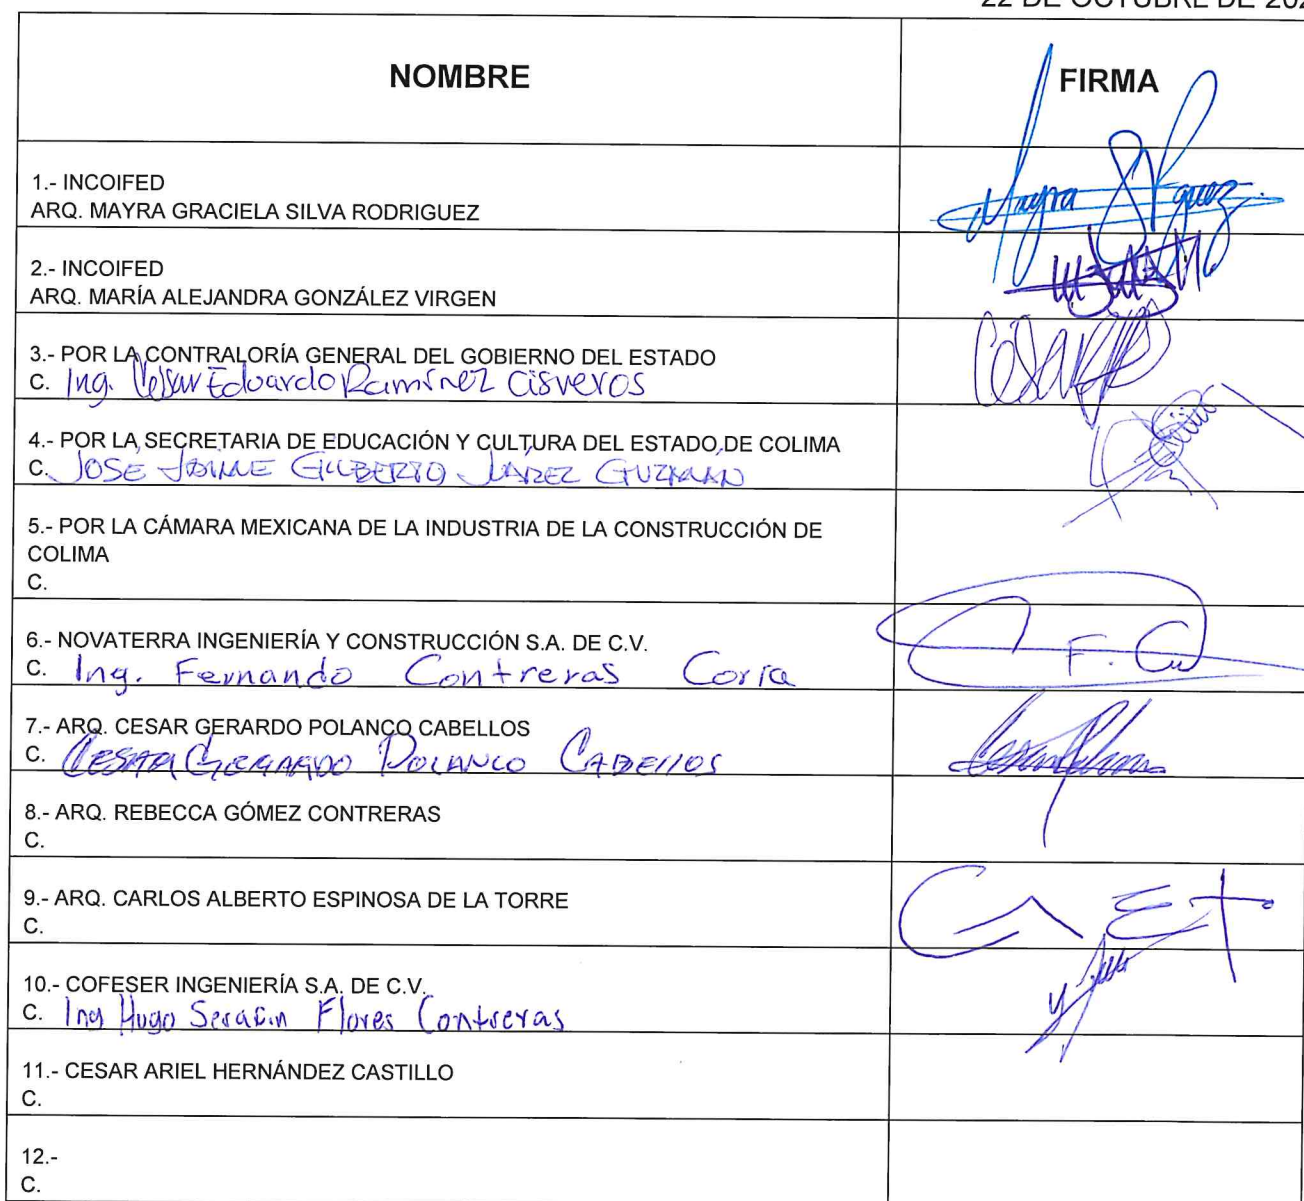 22 DE OCTUBRE DE 202
NOMBRE
FIRMA
1.- INCOIFED
ARQ. MAYRA GRACIELA SILVA RODRIGUEZ
Mayra
2.- INCOIFED
ARQ. MARÍA ALEJANDRA GONZÁLEZ VIRGEN
3.- POR LA CONTRALORÍA GENERAL DEL GOBIERNO DEL ESTADO
C. Ing. César Eduardo Ramírez Cisneros
4.- POR LA SECRETARIA DE EDUCACIÓN Y CULTURA DEL ESTADO DE COLIMA
C. JOSE JAIME GILBERTO JUAREZ GUZMÁN
5.- POR LA CÁMARA MEXICANA DE LA INDUSTRIA DE LA CONSTRUCCIÓN DE
COLIMA
C.
6.- NOVATERRA INGENIERÍA Y CONSTRUCCIÓN S.A. DE C.V.
C. Ing. Fernando Contreras Coria
7.- ARQ. CESAR GERARDO POLANCO CABELLOS
C. CESAR GERARDO POLANCO CABELLOS
8.- ARQ. REBECCA GÓMEZ CONTRERAS
C.
9.- ARQ. CARLOS ALBERTO ESPINOSA DE LA TORRE
C.
10.- COFESER INGENIERÍA S.A. DE C.V.
C. Ing Hugo Serafin Flores Contreras
11.- CESAR ARIEL HERNÁNDEZ CASTILLO
C.
12.-
C.